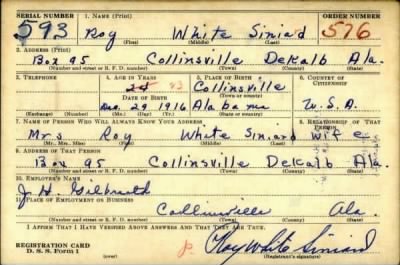 SERIAL NUMBER 1. NAME (Print) ORDER NUMBER
593 Roy White Siniard 576
(First) (Middle) (Last)
2. ADDRESS (Print)
Box 95 Collinsville DeKalb Ala.
(Number and street or R. F. D. number) (Town) (County) (State)
3. TELEPHONE 4. AGE IN YEARS 5. PLACE OF BIRTH 6. COUNTRY OF CITIZENSHIP
24 23 Collinsville
DATE OF BIRTH (Town or county)
Dec. 29 1916 Alabama U.S.A.
(Exchange) (Number) (Mo.) (Day) (Yr.) (State or country)
7. NAME OF PERSON WHO WILL ALWAYS KNOW YOUR ADDRESS 8. RELATIONSHIP OF THAT PERSON
Mrs Roy White Siniard wife
(Mr., Mrs., Miss) (First) (Middle) (Last)
9. ADDRESS OF THAT PERSON
Box 95 Collinsville DeKalb Ala.
(Number and street or R. F. D. number) (Town) (County) (State)
10. EMPLOYER'S NAME
J. H. Gilbreath
11. PLACE OF EMPLOYMENT OR BUSINESS
Collinsville Ala.
(Number and street or R. F. D. number) (Town) (County) (State)
I AFFIRM THAT I HAVE VERIFIED ABOVE ANSWERS AND THAT THEY ARE TRUE.
REGISTRATION CARD
D. S. S. Form 1
Roy White Siniard
(Registrant's signature)